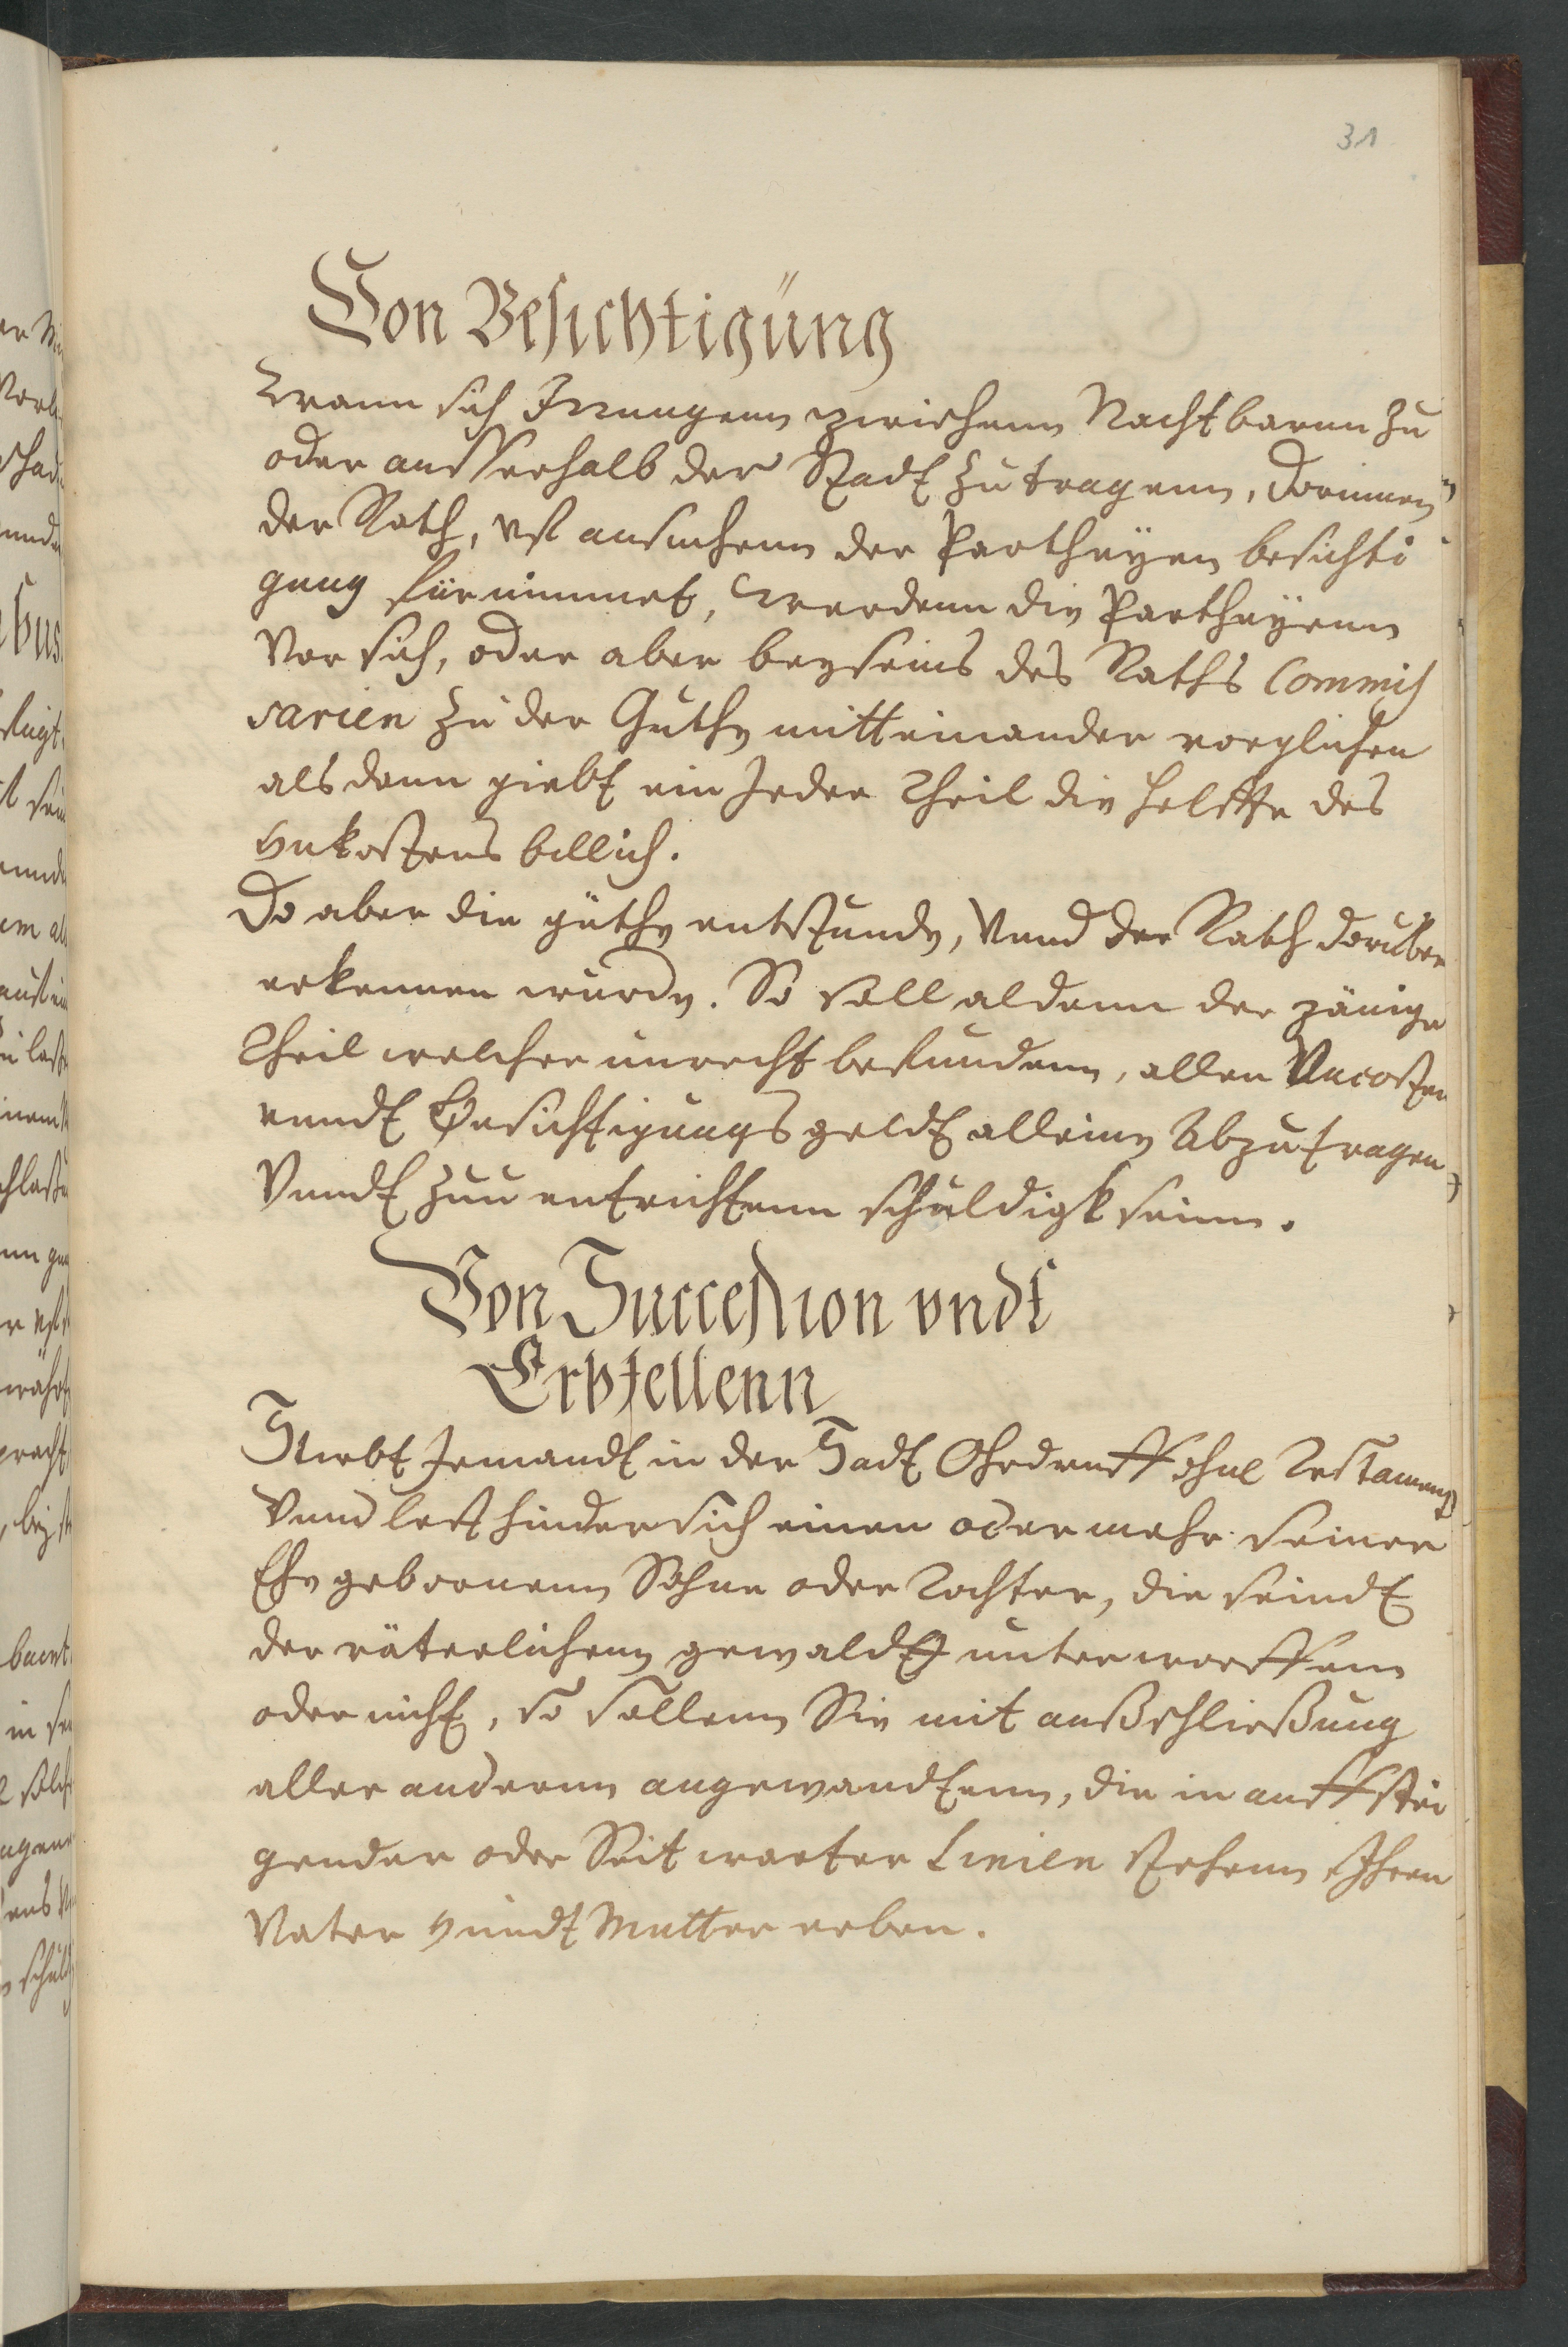 31
Von Besichtigüng
Wann sich Irrungenn zwischenn Nachtbarnn zu
oder ausserhalb der Stadt zutragenn, dorinnen
der Rath, vf ansuchenn der Partheyen besichti
gung fürnimmet, Werdenn die Partheyenn
Vor sich, oder aber beyseins des Raths Commis
sarien zu der Guthe mitteinander verglichen
als dann giebt ein Jeder Theil die helffte des
Vnkostens billich.
Do aber die güthe entstunde, Vnnd der Rath doruber
erkennen wurde. So soll aldann der jänige
Theil welcher unrecht befundenn, allen Vncosten
vnndt Besichtigungs geldt alleine Abzutragen
Vnndt zuu entrichtenn schuldigk seinn.
Von Succession vndt
Erbfellenn
Stirbt Jemandt in der Stadt Ohrdruff ohne Testament
Vnnd lest hinder sich einen oder mehr seiner
Ehe gebornenn Söhne oder Tochter, die seindt
der väterlichenn gewaldt unterworffenn
oder nicht, so sollenn Sie mit außschließung
aller andernn angewandtenn, die in auffstei
gender oder Seit warter Linien stehenn Ihren
Vater Vnndt Mutter erben.